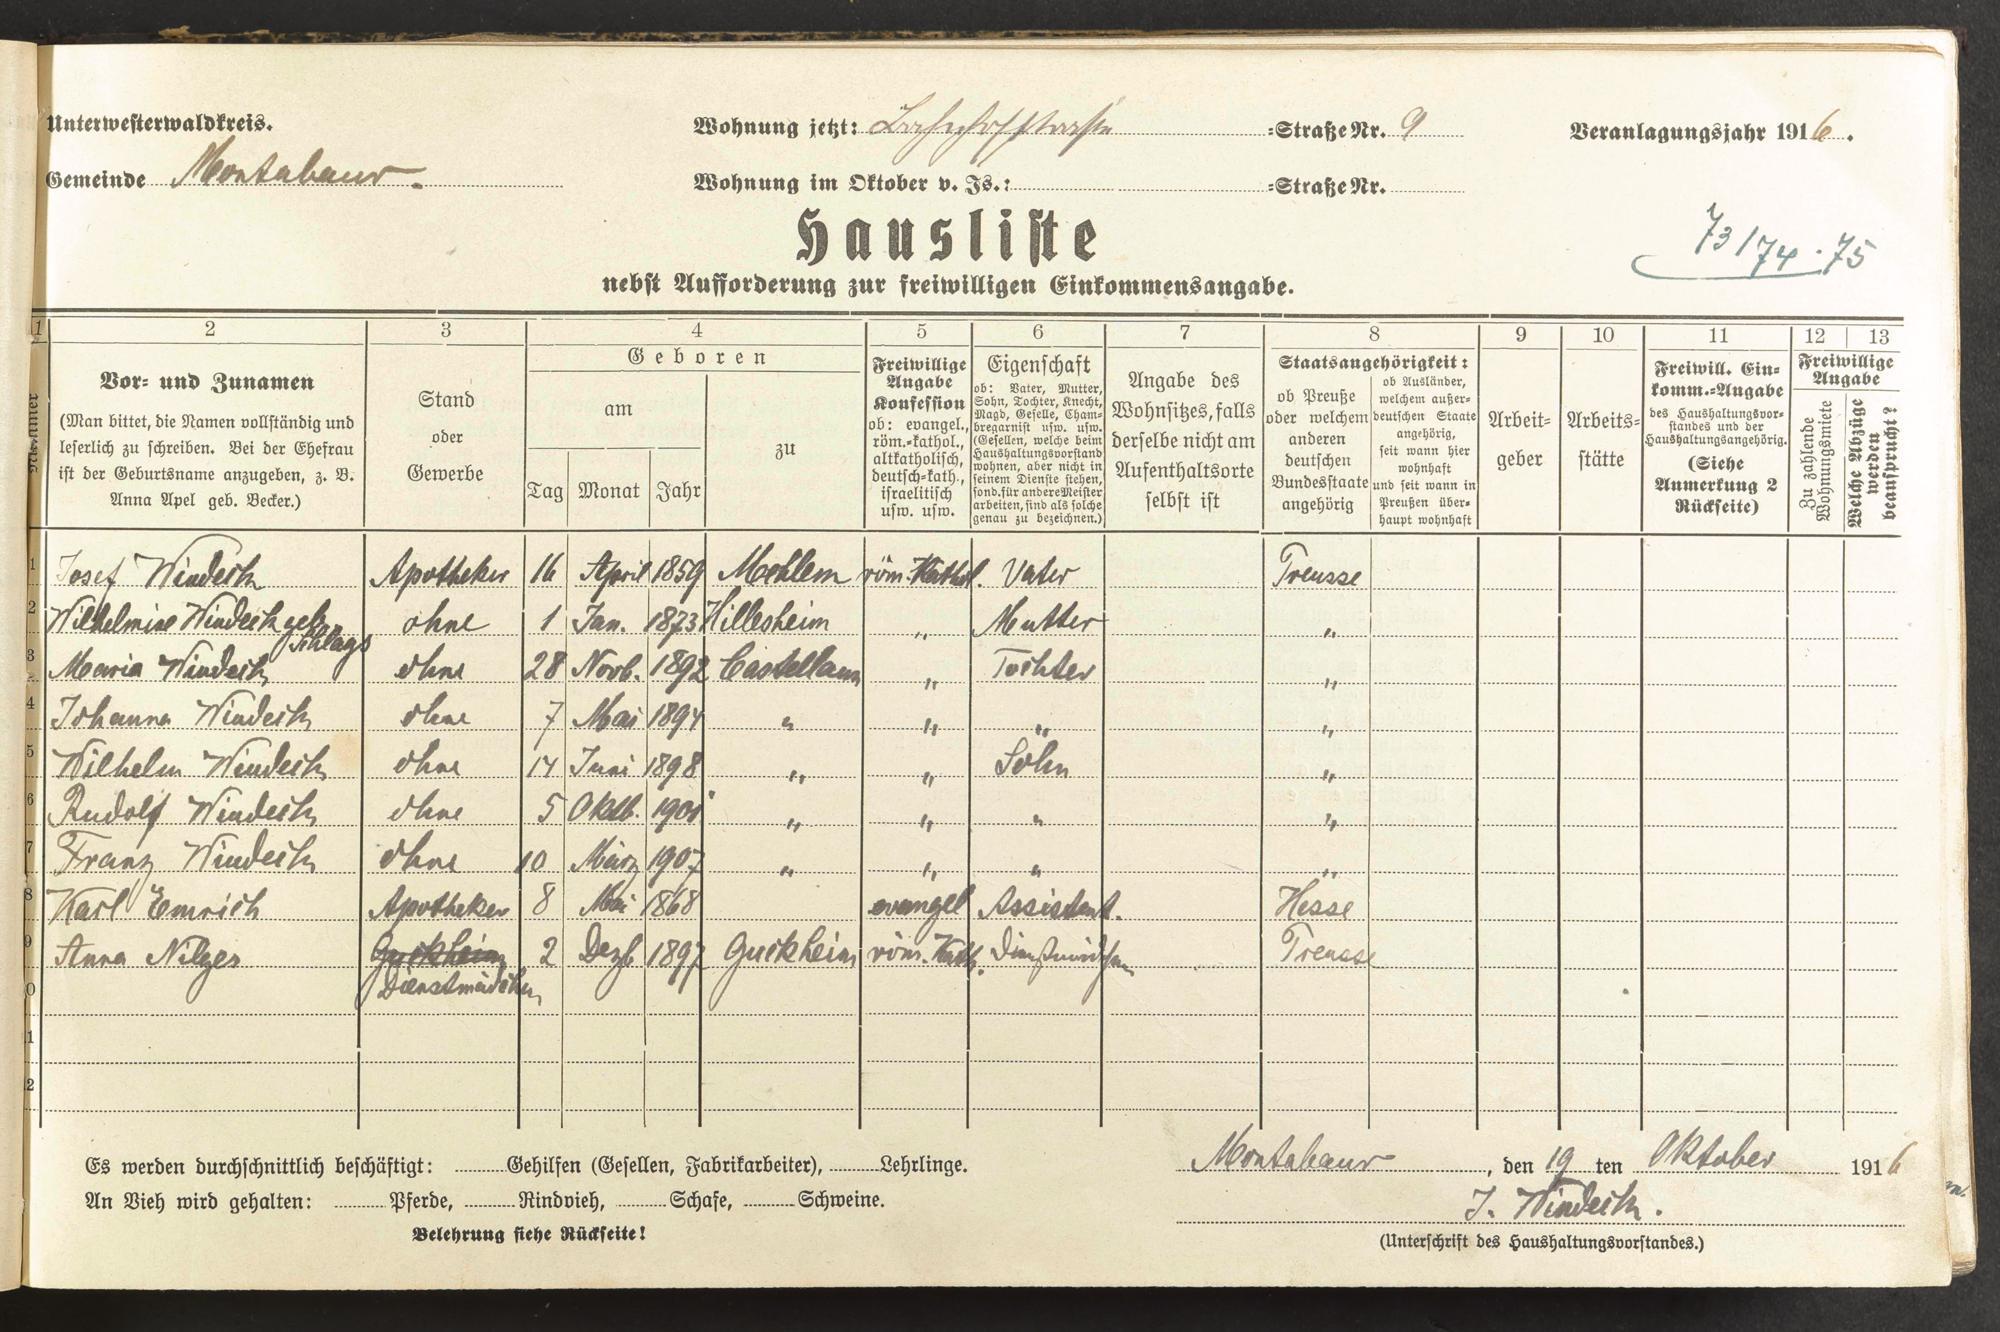 Unterwesterwaldkreis.
Gemeinde Montabaur.
Wohnung jetzt: Bahnhofstraße =Straße Nr. 9
Wohnung im Oktober v. Js.: =Straße Nr.
Veranlagungsjahr 1916.
73/74.75
Hausliste
nebst Aufforderung zur freiwilligen Einkommensangabe.
1 2 3 4 5 6 7 8 9 10 11 12 13
Vor= und Zunamen
(Man bittet, die Namen vollständig und
leserlich zu schreiben. Bei der Ehefrau
ist der Geburtsname anzugeben, z. B.
Anna Apel geb. Becker.)
Stand
oder
Gewerbe
Geboren
am
Tag Monat Jahr
zu
Freiwillige
Angabe
Konfession
ob: evangel.,
röm.=kathol.,
altkatholisch,
deutsch=kath.,
israelitisch
usw. usw.
Eigenschaft
ob: Vater, Mutter,
Sohn, Tochter, Knecht,
Magd, Geselle, Cham=
bregarnist usw. usw.
(Gesellen, welche beim
Haushaltungsvorstand
wohnen, aber nicht in
seinem Dienste stehen,
sond. für andere Meister
arbeiten, sind als solche
genau zu bezeichnen.)
Angabe des
Wohnsitzes, falls
derselbe nicht am
Aufenthaltsorte
selbst ist
Staatsangehörigkeit:
ob Preuße
oder welchem
anderen
deutschen
Bundesstaate
angehörig
ob Ausländer,
welchem außer=
deutschen Staate
angehörig,
seit wann hier
wohnhaft
und seit wann in
Preußen über=
haupt wohnhaft
Arbeit=
geber
Arbeits=
stätte
Freiwill. Ein=
komm.=Angabe
des Haushaltungsvor=
standes und der
Haushaltungsangehörig.
(Siehe
Anmerkung 2
Rückseite)
Freiwillige
Angabe
Zu zahlende
Wohnungsmiete
Welche Abzüge
werden
beansprucht?
1 Josef Windeck Apotheker 16 April 1859 Mehlem röm. Kathol. Vater Preusse
2 Wilhelmine Windeck geb. Schlags ohne 1 Jan. 1873 Hillesheim " Mutter "
3 Maria Windeck ohne 28 Novb. 1892 Castellaun " Tochter "
4 Johanna Windeck ohne 7 Mai 1894 " " " "
5 Wilhelm Windeck ohne 14 Juni 1898 " " Sohn "
6 Rudolf Windeck ohne 5 Oktb. " " " "
7 Franz Windeck ohne 10 März 1907 " " " "
8 Karl Emrich Apotheker 8 Mai 1868 evangel Assistent. Hesse
9 Anna Nilges Guckheim 2 Dezb 1897 Guckheim röm. Kath. Dienstmädchen Preusse
Dienstmädchen
Es werden durchschnittlich beschäftigt: Gehilfen (Gesellen, Fabrikarbeiter), Lehrlinge.
An Vieh wird gehalten: Pferde, Rindvieh, Schafe, Schweine.
Belehrung siehe Rückseite!
Montabaur, den 19 ten Oktober 1916
J. Windeck.
(Unterschrift des Haushaltungsvorstandes.)